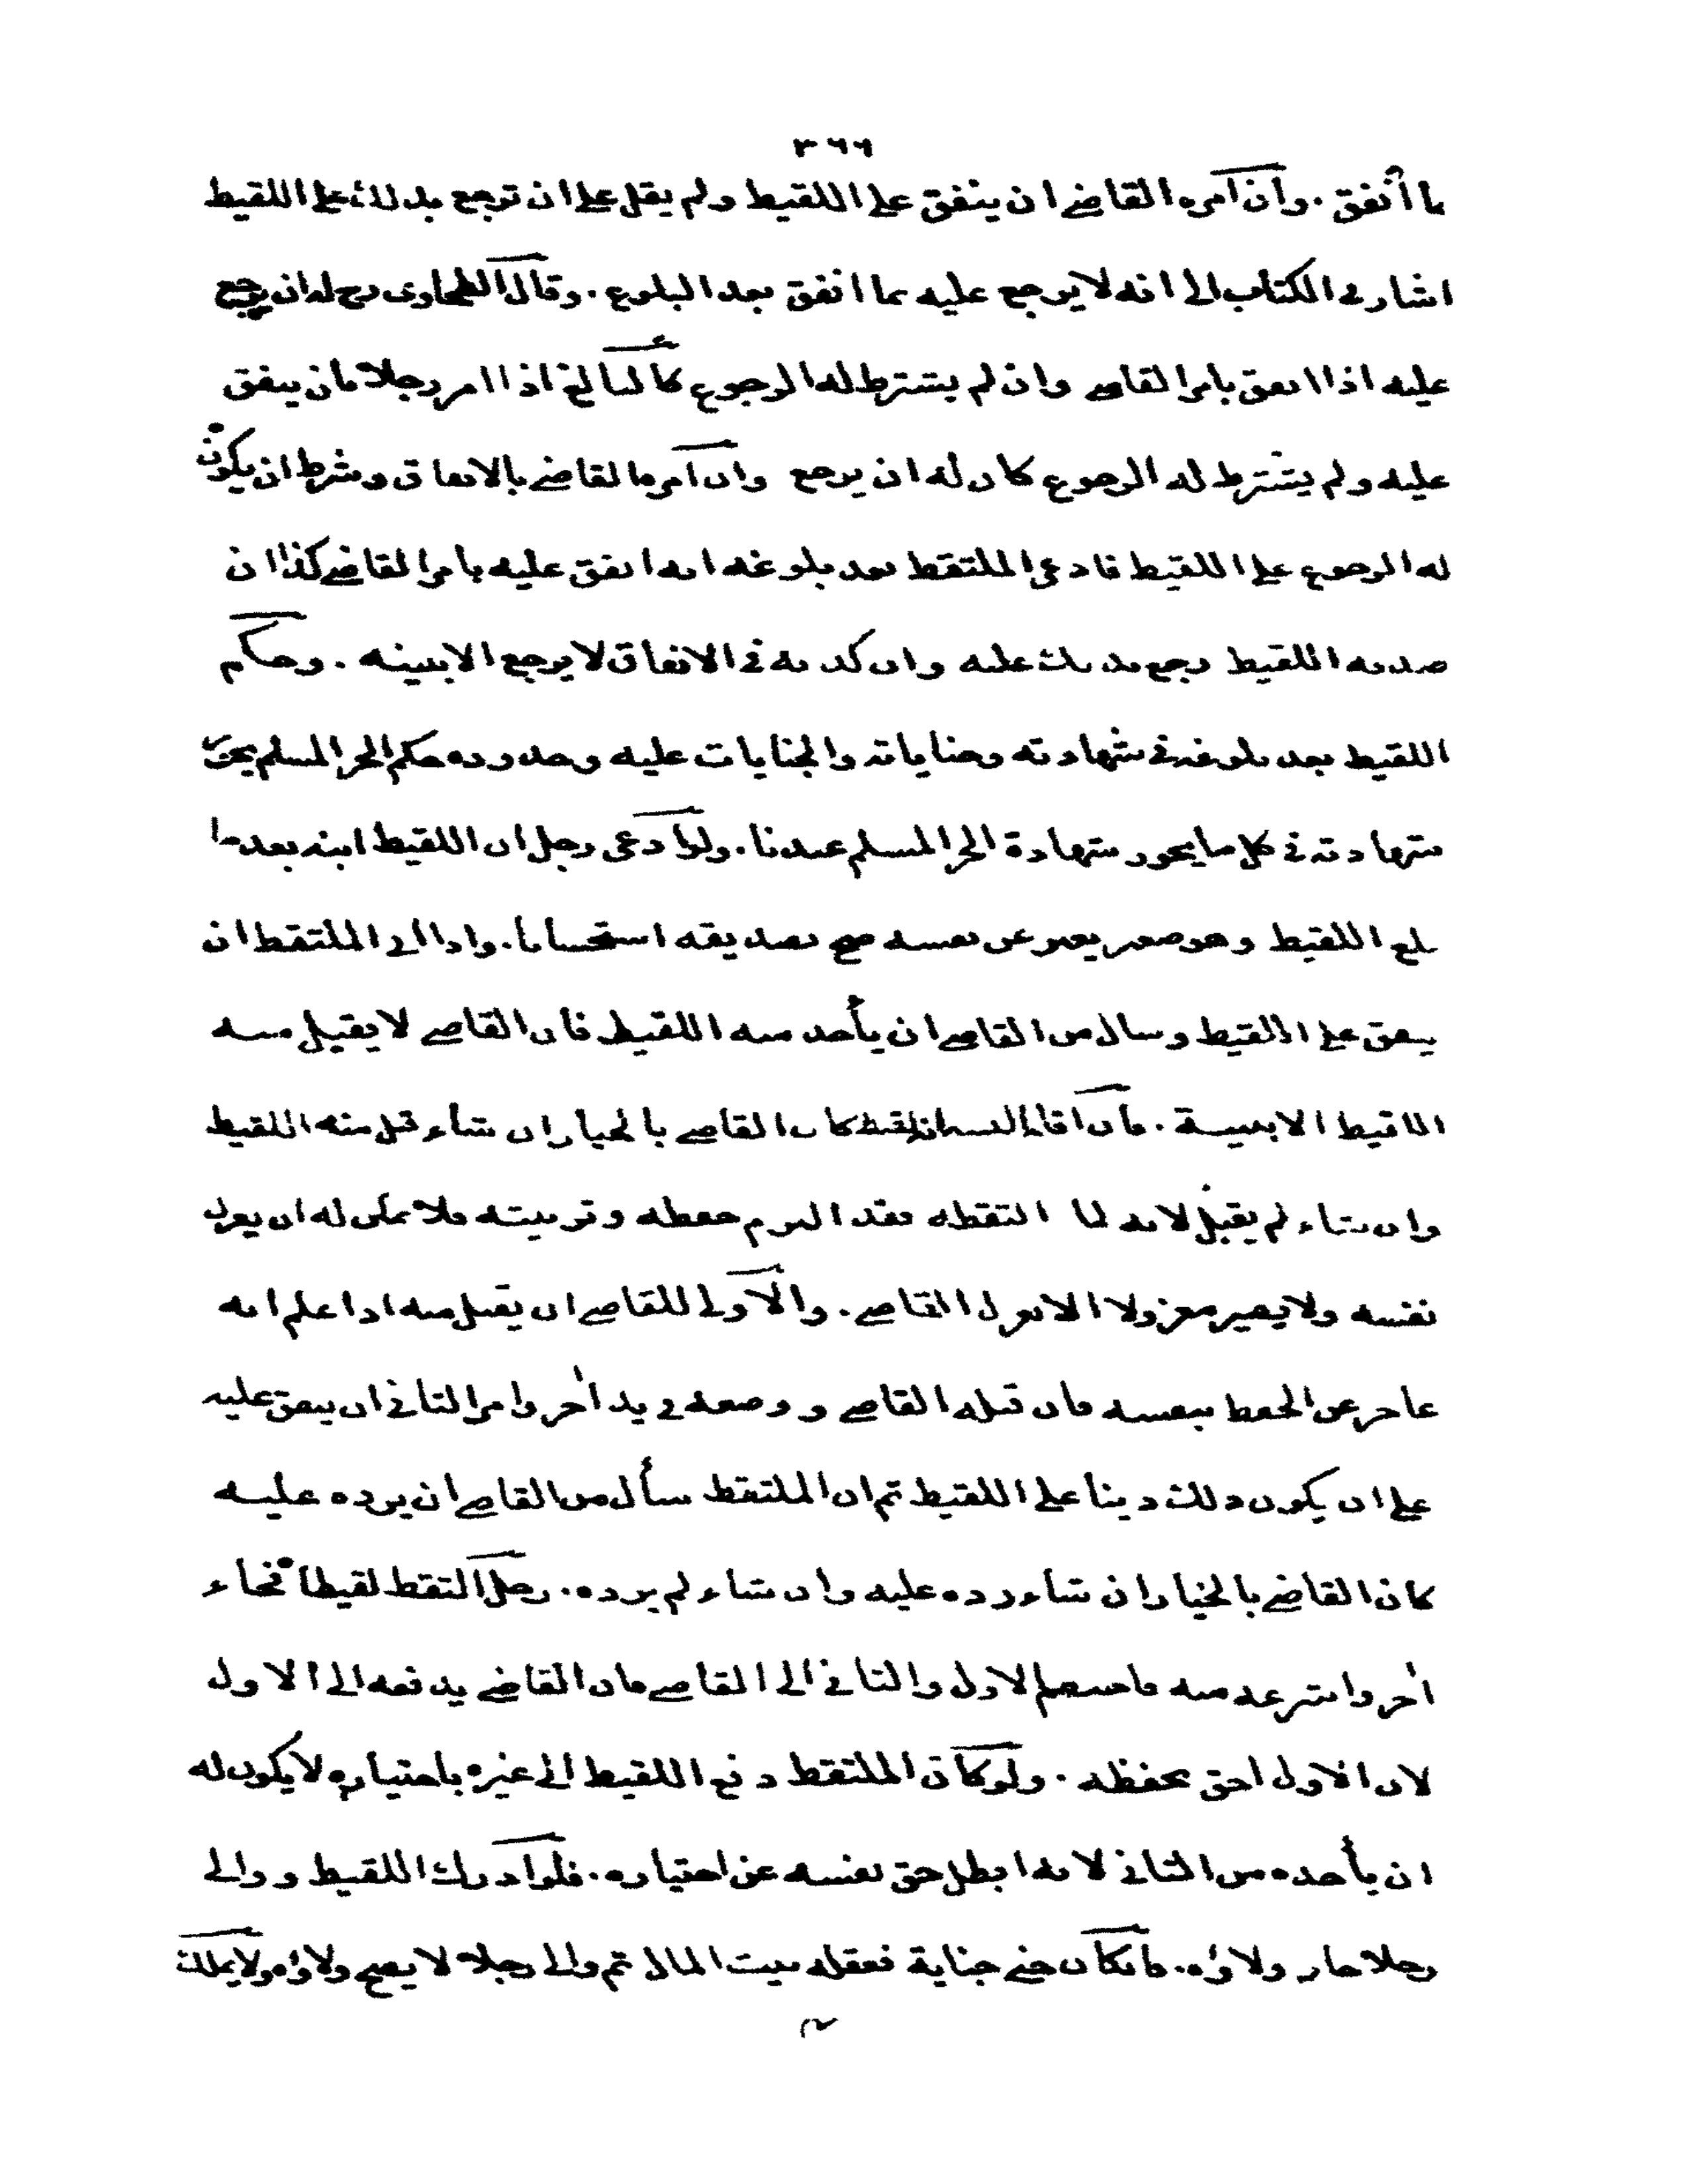 ٣٦٦
ما أنفق . وان امره القاضي ان ينفق على اللقيط ولم يقل على ان ترجع بذلك على اللقيط
اشار في الكتاب الى انه لا يرجع عليه بما انفق بعد البلوغ . وقال الطحاوى رح له ان يرجع
عليه اذا انفق بامر القاضي وان لم يشترط له الرجوع كالبالغ اذا امر رجلا بان ينفق
عليه ولم يشترط له الرجوع كان له ان يرجع وان امره القاضي بالانفاق وشرط ان يكون
له الرجوع على اللقيط فادعى الملتقط بعد بلوغه انه انفق عليه بامر القاضي كذا ان
صدقه اللقيط رجع بذلك عليه وان كذبه في الانفاق لا يرجع الا ببينه . وحكم
اللقيط بعد بلوغه في شهادته وجناياته والجنايات عليه وحدوده حكم الحر المسلم يجوز
شهادته في كل ما يجوز شهادة الحر المسلم عندنا . ولو ادعى رجل ان اللقيط ابنه بعد ما
بلغ اللقيط وهو صغير يعبر عن نفسه صح تصديقه استحسانا . واذا ابى الملتقط ان
ينفق على اللقيط وسال من القاضي ان يأخذ منه اللقيط فان القاضي لا يقبل منه
اللقيط الا ببينة . فان اقام البينة انه لقيط كان القاضي بالخيار ان شاء قبل منه اللقيط
وان شاء لم يقبل لانه لما التقطه فقد التزم حفظه وتربيته فلا يمكن له ان يعزل
نفسه ولا يصير معزولا الا بعزل القاضي . والاولى للقاضي ان يقبل منه اذا علم انه
عاجز عن الحفظ بنفسه فان قبله القاضي و وضعه في يد اخر وامر الثاني ان ينفق عليه
على ان يكون ذلك دينا على اللقيط ثم ان الملتقط سأل من القاضي ان يرده عليه
كان القاضي بالخيار ان شاء رده عليه وان شاء لم يرده . رجل التقط لقيطا فجاء
اخر وانتزعه منه فاختصم الاول والثاني الى القاضي فان القاضي يدفعه الى الاول
لان الاول احق بحفظه . ولو كان الملتقط دفع اللقيط الى غيره باختياره لا يكون له
ان يأخذه من الثاني لانه ابطل حق نفسه عن اختياره . فلو ادرك اللقيط و والى
رجلا جاز ولاؤه . فان كان جنى جناية فعقله بيت المال ثم والى رجلا لا يصح ولاؤه ولا يملك